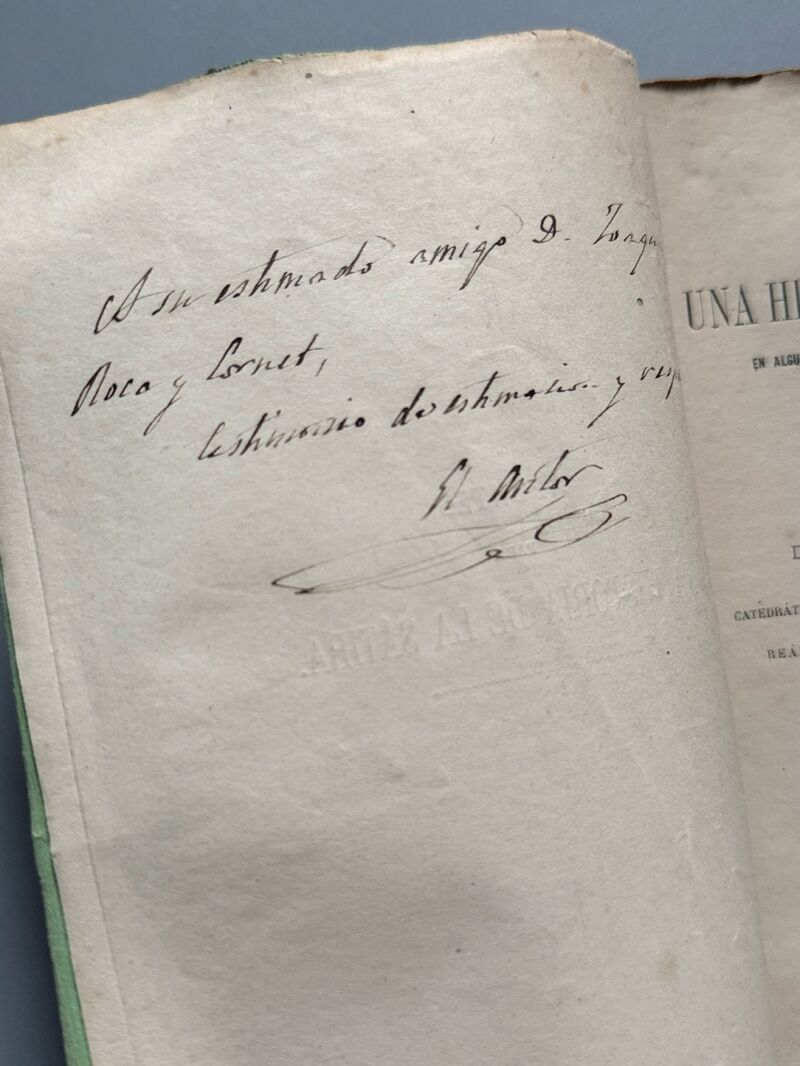 A su estimado amigo D. Joaqu
Roca y Cornet,
testimonio de estimacion y resp
El Autor
HISTORIA DE LA SÁTIRA
UNA HI
EN ALGU
D
CATEDRÁT
REA